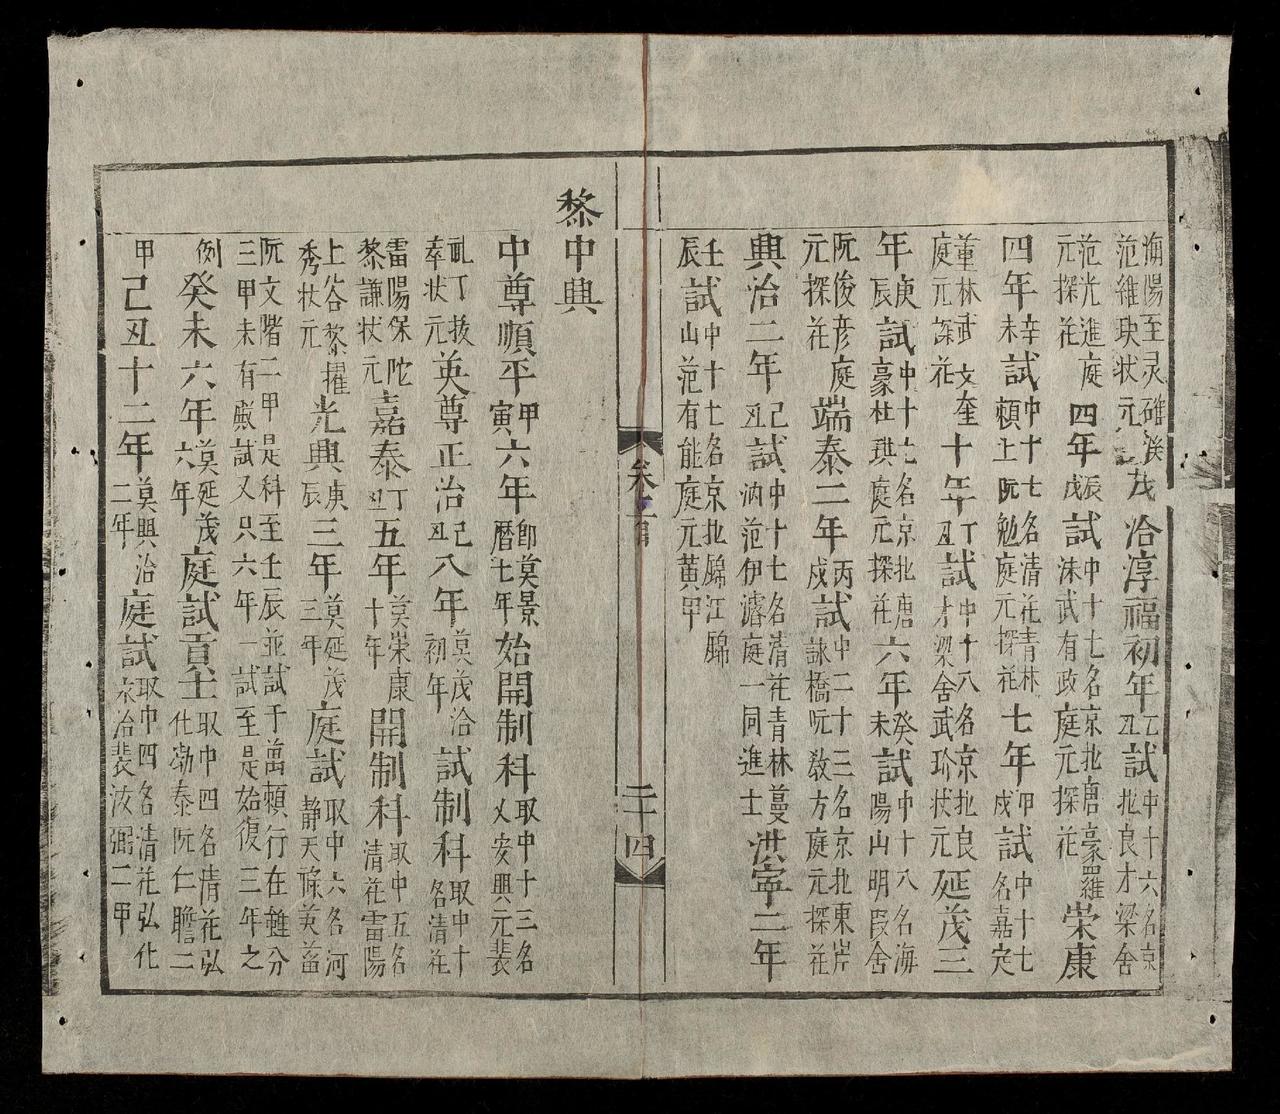 海陽至灵確溪范維玦状元茂洽淳福初年乙丑試中十六名京北良才梁舍
范光進庭元探花四年戊辰試中十七名京北唐豪羅沫武有政庭元探花榮康
四年辛未試中十七名清花青林頼上阮勉庭元探花七年甲戌試中十七名嘉定
董林武文奎庭元探花十年丁丑試中十八名京北良才梁舍武玠状元延茂三
年庚辰試中十七名京北唐豪杜珙庭元探花六年癸未試中十八名海陽山明段舍
阮俊彦庭元探花端泰二年丙戌試中二十三名京北東岸詠橋阮教方庭元探花
興治二年己丑試中十七名清花青林蔓汭范伊濬庭一同進士洪寧二年
壬辰試中十七名京北錦江錦山范有能庭元黄甲
卷首 二十四
黎中興
中尊順平甲寅六年即莫景暦七年始開制科取中十三名乂安興元裴
乱丁拔奉状元英尊正治己丑八年莫茂洽初年試制科取中十名清花
雷陽保陀黎謙状元嘉泰丁丑五年莫崇康十年開制科取中五名清花雷陽
上谷黎擢秀状元光興庚辰三年莫延茂三年庭試取中六名河静天禄芙蓄
阮文階二甲是科至壬辰並試于萬頼行在雖分三甲未有歲試又只六年一試至是始復三年之
例癸未六年莫延茂六年庭試貢士取中四名清花弘化渤泰阮仁瞻二
甲己丑十二年莫興治二年庭試取中四名清花弘化永治裴汝弼二甲